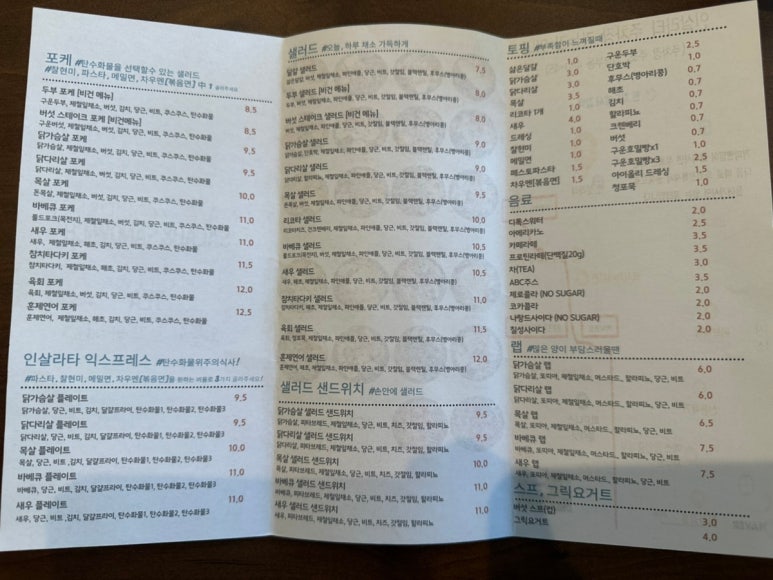 포케 #탄수화물을 선택할수 있는 샐러드
#찰현미, 파스타, 메밀면, 차우멘[볶음면] 中 1 골라주세요
두부 포케 [비건 메뉴] 8,5
구운두부, 제철잎채소, 버섯, 김치, 당근, 비트, 쿠스쿠스, 탄수화물
버섯 스테이크 포케 [비건메뉴] 8,5
구운버섯, 제철잎채소, 버섯, 김치, 당근, 비트, 쿠스쿠스, 탄수화물
닭가슴살 포케 9,5
닭가슴살, 제철잎채소, 버섯, 김치, 당근, 비트, 쿠스쿠스, 탄수화물
닭다리살 포케 9,5
닭다리살, 제철잎채소, 버섯, 김치, 당근, 비트, 쿠스쿠스, 탄수화물
목살 포케 10,0
돈목살, 제철잎채소, 버섯, 김치, 당근, 비트, 쿠스쿠스, 탄수화물
바베큐 포케 11,0
풀드포크(목전지), 제철잎채소, 버섯, 김치, 당근, 비트, 쿠스쿠스, 탄수화물
새우 포케 11,0
새우, 제철잎채소, 해초, 김치, 당근, 비트, 쿠스쿠스, 탄수화물
참치타다키 포케 11,5
참치타다키, 제철잎채소, 해초, 김치, 당근, 비트, 쿠스쿠스, 탄수화물
육회 포케 12,0
육회, 제철잎채소, 버섯, 김치, 당근, 비트, 쿠스쿠스, 탄수화물
훈제연어 포케 12,5
훈제연어, 제철잎채소, 해초, 김치, 당근, 비트, 쿠스쿠스, 탄수화물
인살라타 익스프레스 #탄수화물위주의식사!
#파스타, 찰현미, 메밀면, 차우멘[볶음면]을 원하는 비율로 3가지 골라주세요!
닭가슴살 플레이트 9,5
닭가슴살, 당근, 비트, 김치, 달걀프라이, 탄수화물1, 탄수화물2, 탄수화물3
닭다리살 플레이트 9,5
닭다리살, 당근, 비트 ,김치, 달걀프라이, 탄수화물1, 탄수화물2, 탄수화물3
목살 플레이트 10,0
목살, 당근, 비트 ,김치, 달걀프라이, 탄수화물1, 탄수화물2, 탄수화물3
바베큐 플레이트 11,0
바베큐, 당근, 비트, 김치, 달걀프라이, 탄수화물1, 탄수화물2, 탄수화물3
새우 플레이트 11,0
새우, 당근, 비트 ,김치, 달걀프라이, 탄수화물1, 탄수화물2, 탄수화물3
샐러드 #오늘, 하루 채소 가득하게
달걀 샐러드 7,5
삶은달걀, 버섯, 제철잎채소, 파인애플, 당근, 비트, 갓절임, 블랙렌틸, 후무스(병아리콩)
두부 샐러드 [비건 메뉴] 8,0
두부, 버섯, 제철잎채소, 파인애플, 당근, 비트, 갓절임, 블랙렌틸, 후무스(병아리콩)
버섯 스테이크 샐러드 [비건 메뉴] 8,0
버섯, 제철잎채소, 파인애플, 당근, 비트, 갓절임, 블랙렌틸, 후무스(병아리콩)
닭가슴살 샐러드 9,0
닭가슴살, 단호박, 제철잎채소, 파인애플, 당근, 비트, 갓절임, 블랙렌틸, 후무스(병아리콩)
닭다리살 샐러드 9,0
닭다리살, 할라피뇨, 제철잎채소, 파인애플, 당근, 비트, 갓절임, 블랙렌틸, 후무스(병아리콩)
목살 샐러드 9,5
돈목살, 버섯, 제철잎채소, 파인애플, 당근, 비트, 갓절임, 블랙렌틸, 후무스(병아리콩)
리코타 샐러드 10,0
리코타치즈, 건크렌베리, 제철잎채소, 파인애플, 당근, 비트, 갓절임, 블랙렌틸, 후무스(병아리콩)
바베큐 샐러드 10,5
풀드포크(목전지), 버섯, 제철잎채소, 파인애플, 당근, 비트, 갓절임, 블랙렌틸, 후무스(병아리콩)
새우 샐러드 10,5
새우, 해초, 제철잎채소, 파인애플, 당근, 비트, 갓절임, 블랙렌틸, 후무스(병아리콩)
참치타다키 샐러드 11,0
참치타다키, 해초, 제철잎채소, 파인애플, 당근, 비트, 갓절임, 블랙렌틸, 후무스(병아리콩)
육회 샐러드 11,5
육회, 청포묵, 제철잎채소, 파인애플, 당근, 비트, 갓절임, 블랙렌틸, 후무스(병아리콩)
훈제연어 샐러드 12,0
훈제연어, 해초, 제철잎채소, 파인애플, 당근, 비트, 갓절임, 블랙렌틸, 후무스(병아리콩)
샐러드 샌드위치 #손안에 샐러드
닭가슴살 샐러드 샌드위치 9,5
닭가슴살, 피타브레드, 제철잎채소, 당근, 비트, 치즈, 갓절임, 할라피뇨
닭다리살 샐러드 샌드위치 9,5
닭다리살, 피타브레드, 제철잎채소, 당근, 비트, 치즈, 갓절임, 할라피뇨
목살 샐러드 샌드위치 10,0
목살, 피타브레드, 제철잎채소, 당근, 비트, 치즈, 갓절임, 할라피뇨
바베큐 샐러드 샌드위치 11,0
바베큐, 피타브레드, 제철잎채소, 당근, 비트, 치즈, 갓절임, 할라피뇨
새우 샐러드 샌드위치 11,0
새우, 피타브레드, 제철잎채소, 당근, 비트, 치즈, 갓절임, 할라피뇨
토핑 #부족함이 느껴질때
삶은달걀 1,0 구운두부 2,5
닭가슴살 3,0 단호박 1,0
닭다리살 3,0 후무스(병아리콩) 0,7
목살 3,5 해초 0,7
리코타 1개 1,0 김치 0,7
새우 4,0 할라피뇨 0,7
드레싱 1,0 크렌베리 0,7
찰현미 1,0 버섯 0,7
메밀면 1,0 구운호밀빵x1 1,0
페스토파스타 1,5 구운호밀빵x3 2,5
차우멘[볶음면] 1,5 아이올리 드레싱 1,5
청포묵 1,0
음료
다톡스워터 2,0
아메리카노 2,5
카페라떼 3,5
프로틴라떼(단백질20g) 3,5
차(TEA) 3,0
ABC주스 3,5
제로콜라 (NO SUGAR) 2,0
코카콜라 2,0
나랑드사이다 (NO SUGAR) 2,0
칠성사이다 2,0
랩 #많은 양이 부담스러울땐
닭가슴살 랩 6,0
닭가슴살, 또띠아, 제철잎채소, 머스타드, 할라피뇨, 당근, 비트
닭다리살 랩 6,0
닭다리살, 또띠아, 제철잎채소, 머스타드, 할라피뇨, 당근, 비트
목살 랩 6,5
목살, 또띠아, 제철잎채소, 머스타드, 할라피뇨, 당근, 비트
바베큐 랩 7,5
바베큐, 또띠아, 제철잎채소, 머스타드, 할라피뇨, 당근, 비트
새우 랩 7,5
새우, 또띠아, 제철잎채소, 머스타드, 할라피뇨, 당근, 비트
스프, 그릭요거트
버섯 스프(컵) 3,0
그릭요거트 4.0